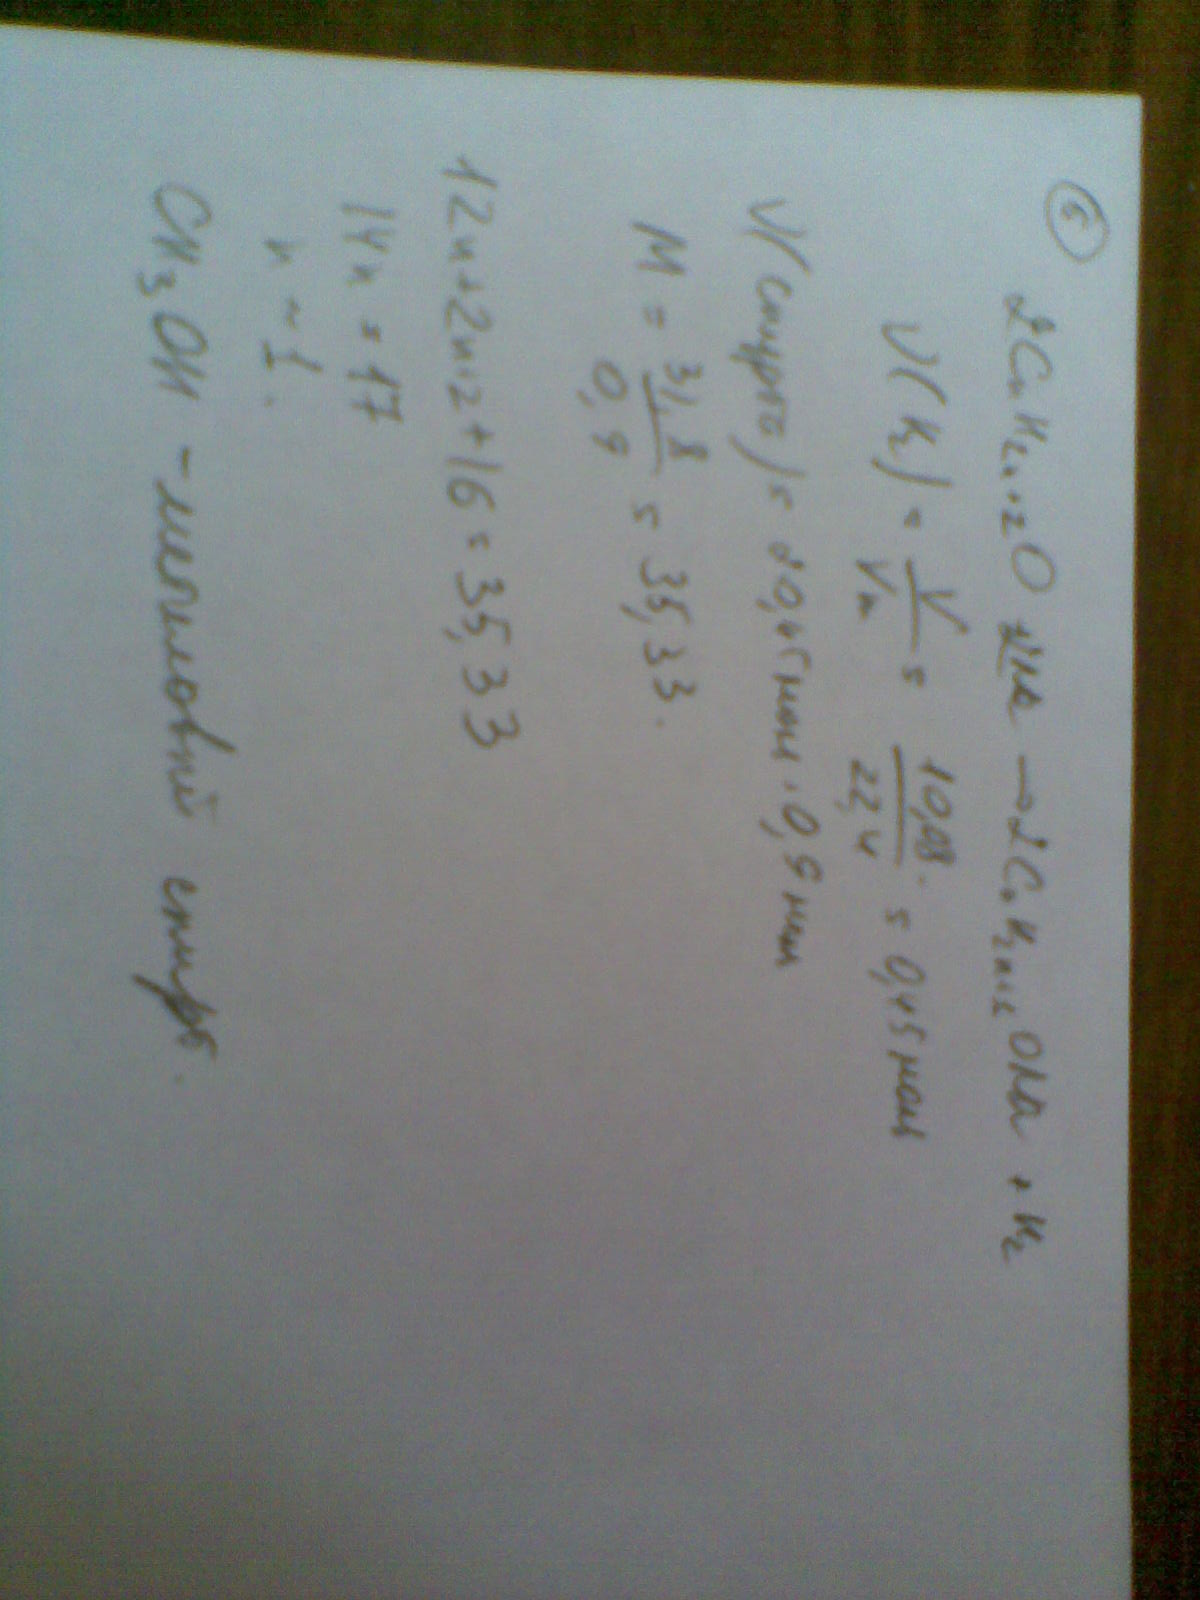 5
2CnH2n+2O + 2Na → 2CnH2n+2ONa + H2
ν(H2) = V/Vm = 10,08/22,4 = 0,45 моль
ν(спирта) = 2·0,45 моль = 0,9 моль
M = 31,8/0,9 = 35,33.
12n+2n+2+16 = 35,33
14n = 17
n ~ 1.
CH3OH – метиловый спирт.